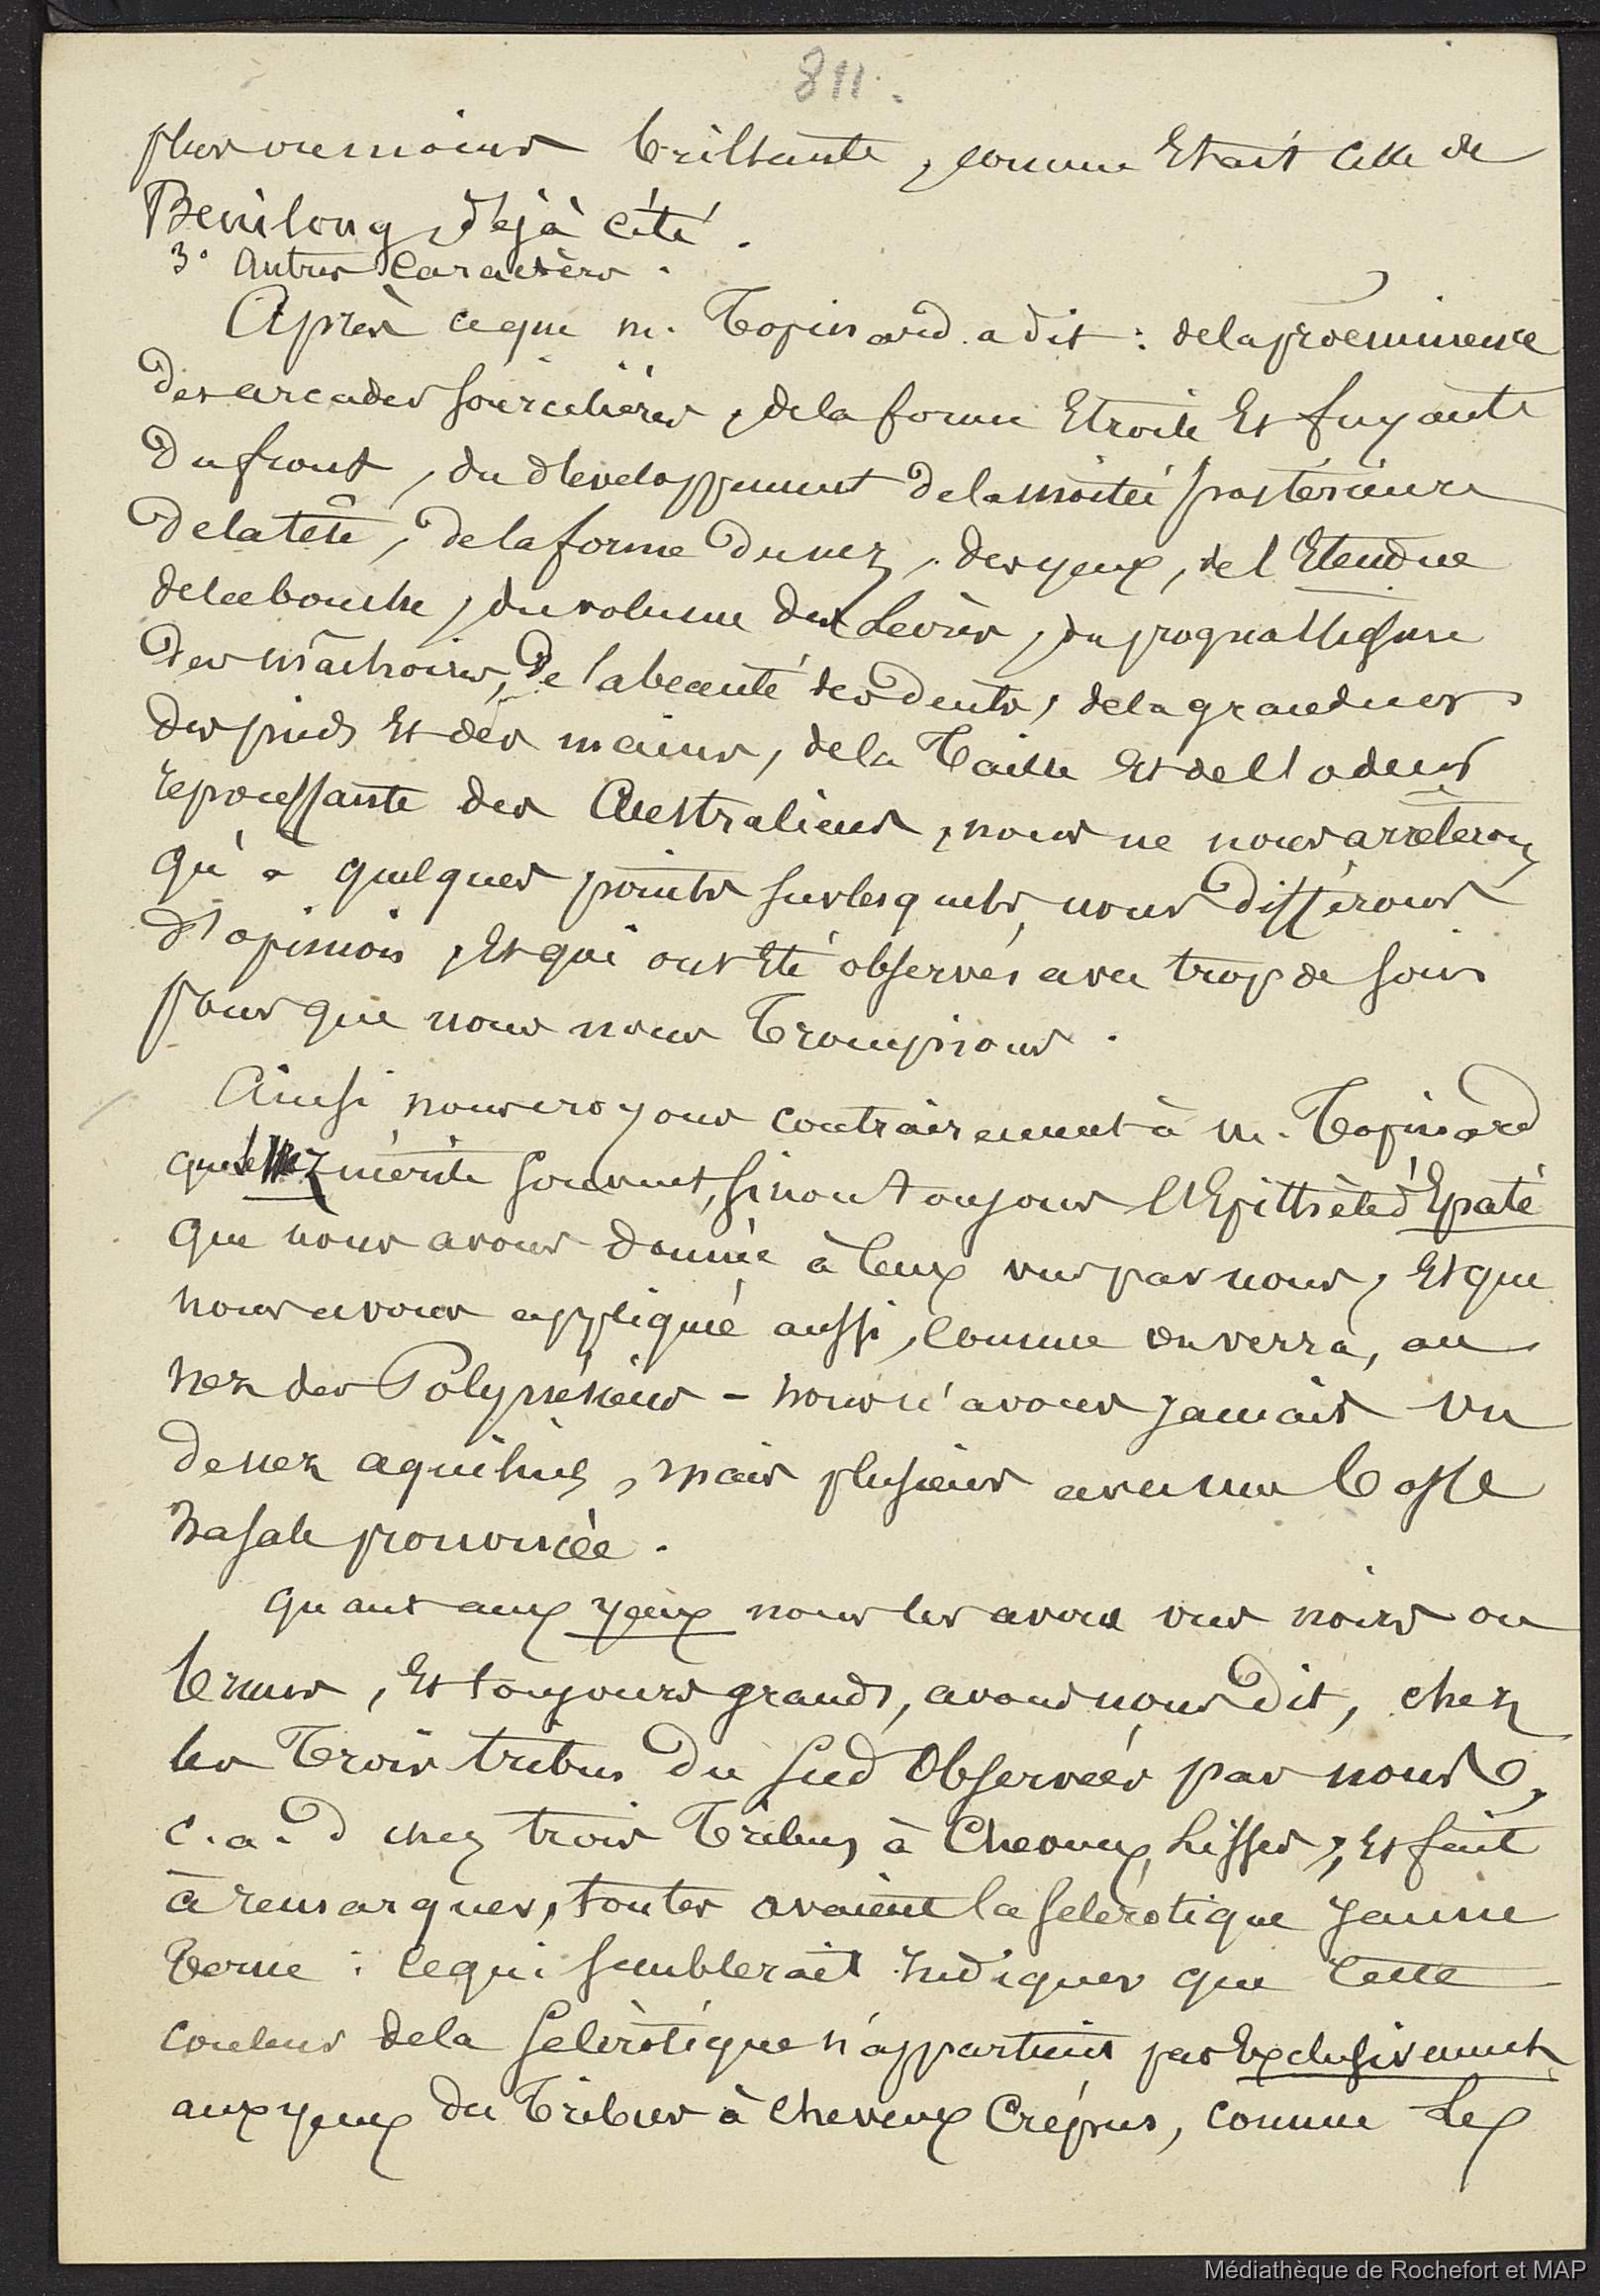 811.
plus ou moins brillante, comme Etait celle de
Benilong, déjà cité.
3° Autres Caractères.
Après ce que m. Topinard a dit : de la proeminence
des arcades sourcilières, de la forme Etroite Et fuyante
du front, du développement de la moitié postérieure
de la tête, de la forme du nez, des yeux, de l'Etendue
de la bouche, du volume des Levres, du prognathisme
des mâchoires, de la beauté des dents, de la grandeur
des pieds Et des mains, de la Taille Et de l'odeur
repoussante des Australiens, nous ne nous arrêterons
qu'à quelques points sur lesquels nous différons
d'opinion, Et qui ont Eté observés avec trop de soin
pour que nous nous Trompions.
Ainsi nous croyons contrairement à m. Topinard
que le nez mérite souvent, sinon toujours l'Epithète d'Epaté
que nous avons donnée à Ceux vus par nous, Et que
nous avons appliqué aussi, comme on verra, au
nez des Polynésiens - nous n'avons jamais vu
de nez aquilins, mais plusieurs avec une bosse
nasale prononcée.
Quant aux yeux nous les avons vus noirs ou
bruns, Et toujours grands, avons nous dit, chez
les Trois tribus du Sud Observées par nous,
c. a. d chez trois Tribus à Cheveux Lisses, Et fait
à remarquer, toutes avaient la sclérotique jaune
terne : ce qui semblerait indiquer que cette
couleur de la Sclérotique n'appartient pas Exclusivement
aux yeux du Tribus à cheveux Crépus, comme Les
Médiathèque de Rochefort et MAP